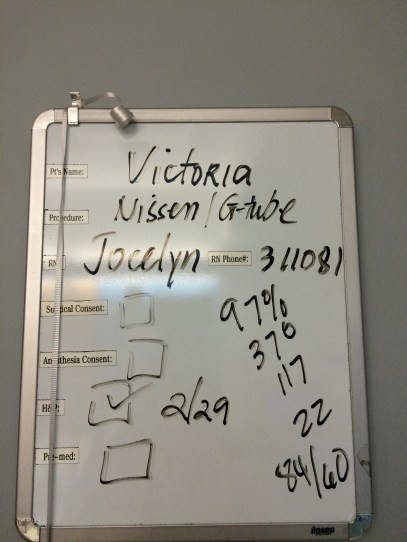 Pt's Name: Victoria
Procedure: Nissen/G-tube
RN Jocelyn RN Phone#: 311081
Surgical Consent: 97%
376
Anesthesia Consent: 117
H&P: 2/29 22
Pre-med: 84/60